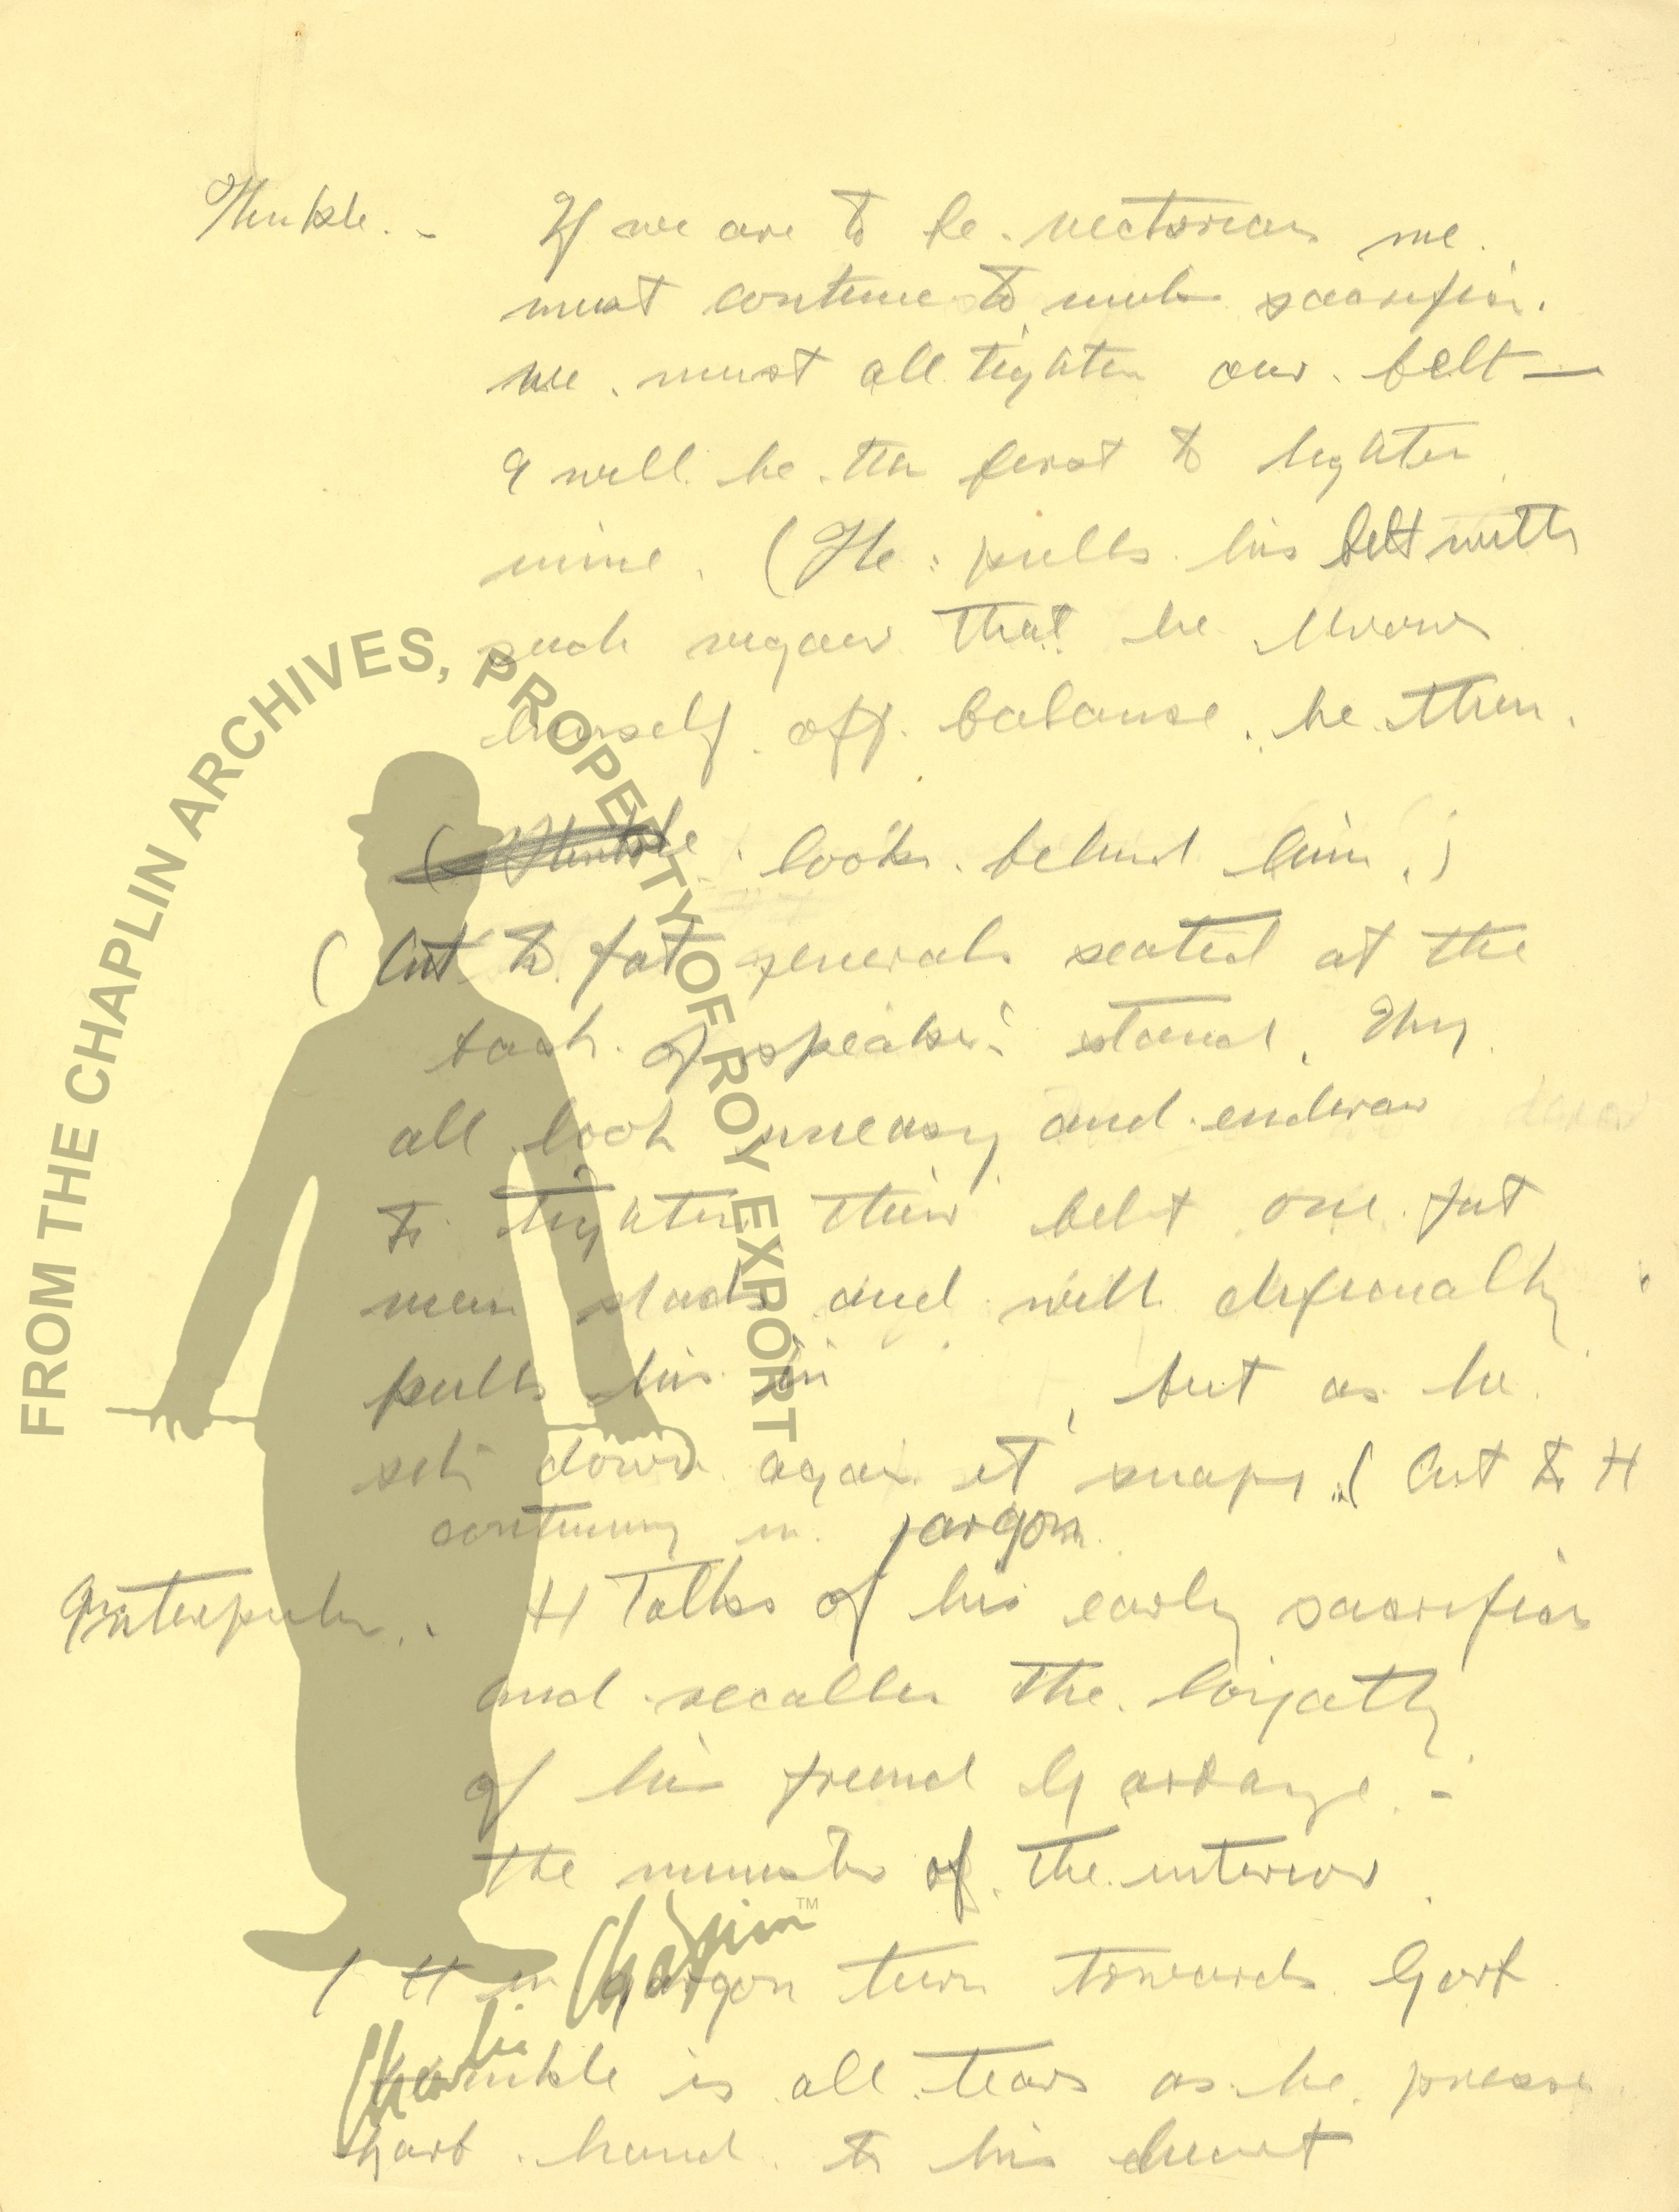 Hinkle. - If we are to be victorious we
must continue to make sacrifice.
We must all tighten our belt —
I will be the first to tighten
mine. (He pulls his belt with
such vigour that he throws
himself off balance. he then.
(Hinkle looks behind him.)
(Cut to fat generals seated at the
back of speaker's stand. They
all look uneasy and endevor
to tighten their belt one fat
man stands and with difficualty
pulls his in, but as he
sits down again it snaps. (Cut to H
continuing in jargon.
Interpreter. . H Talks of his early sacrifices
and recalles the loyalty
of his friend Garbage -
the minister of the interior.
( H in gargon turn towards Garb
Hinkle is all tears as he presses
Garb hand to his cheast
FROM THE CHAPLIN ARCHIVES, PROPERTY OF ROY EXPORT
Charlie Chaplin™